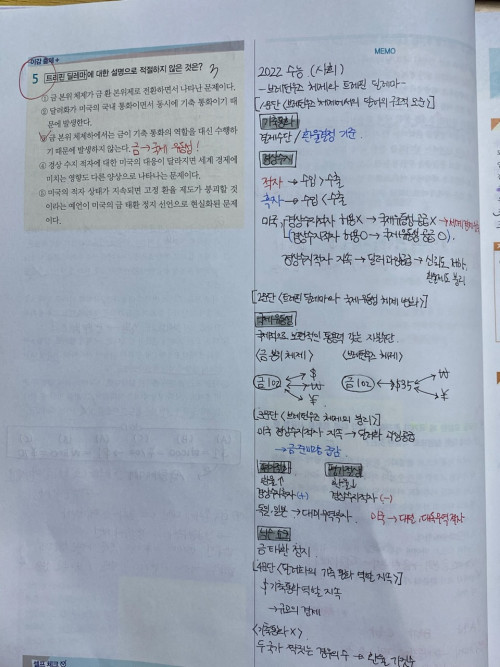 이감 클래스+
5 트리핀 딜레마에 대한 설명으로 적절하지 않은 것은? 3
① 금 본위 체제가 금 환 본위제로 전환하면서 나타난 문제이다.
② 달러화가 미국의 국내 통화이면서 동시에 기축 통화이기 때
문에 발생한다.
③ 금 본위 체제하에서는 금이 기축 통화의 역할을 대신 수행하
기 때문에 발생하지 않는다. 금→국제 유동성!
④ 경상 수지 적자에 대한 미국의 대응이 달라지면 세계 경제에
미치는 영향도 다른 양상으로 나타나는 문제이다.
⑤ 미국의 적자 상태가 지속되면 고정 환율 제도가 붕괴할 것
이라는 예언이 미국의 금 태환 정지 선언으로 현실화된 문제
이다.
셀프 체크
MEMO
2022 수능 (사회)
-브레턴우즈 체제와 트리핀 딜레마-
[1문단 <브레턴우즈 체제에서의 달러의 구조적 모순>]
기축통화
결제수단 / 환율결정 기준.
경상수지
적자 → 수입 > 수출
흑자 → 수입 < 수출
미국, 경상수지적자 허용X → 국제유동성 공급X →
(경상수지적자 허용O → 국제유동성 공급O).
경상수지적자 지속 → 달러 과잉공급 → 신뢰도 저하,
환율제도 붕괴
[2문단 <트리핀 딜레마와 국제 유동성 체제 변화>]
국제유동성
국제적으로 보편적인 통용력 갖는 지불수단.
<금 본위 체제> <브레턴우즈 체제>
$ ₩
금 1oz ₩ 금 1oz ↔ $35
¥ ¥
[3문단 <브레턴우즈 체제의 붕괴>]
미국 경상수지적자 지속 → 달러화 과잉공급
→ 금준비량 급감.
평가절하 평가절상
환율↑ 환율↓
경상수지 (+) 경상수지적자 (-)
독일, 일본 → 대미무역흑자. 미국 →
닉슨 쇼크
금태환 정지.
[4문단 <달러화의 기축 통화 역할 지속>]
$ 기축통화 역할 지속
→ 규모의 경제
<기축통화 X>
두 국가 짝짓는 경우의 수 → 환율 가짓수